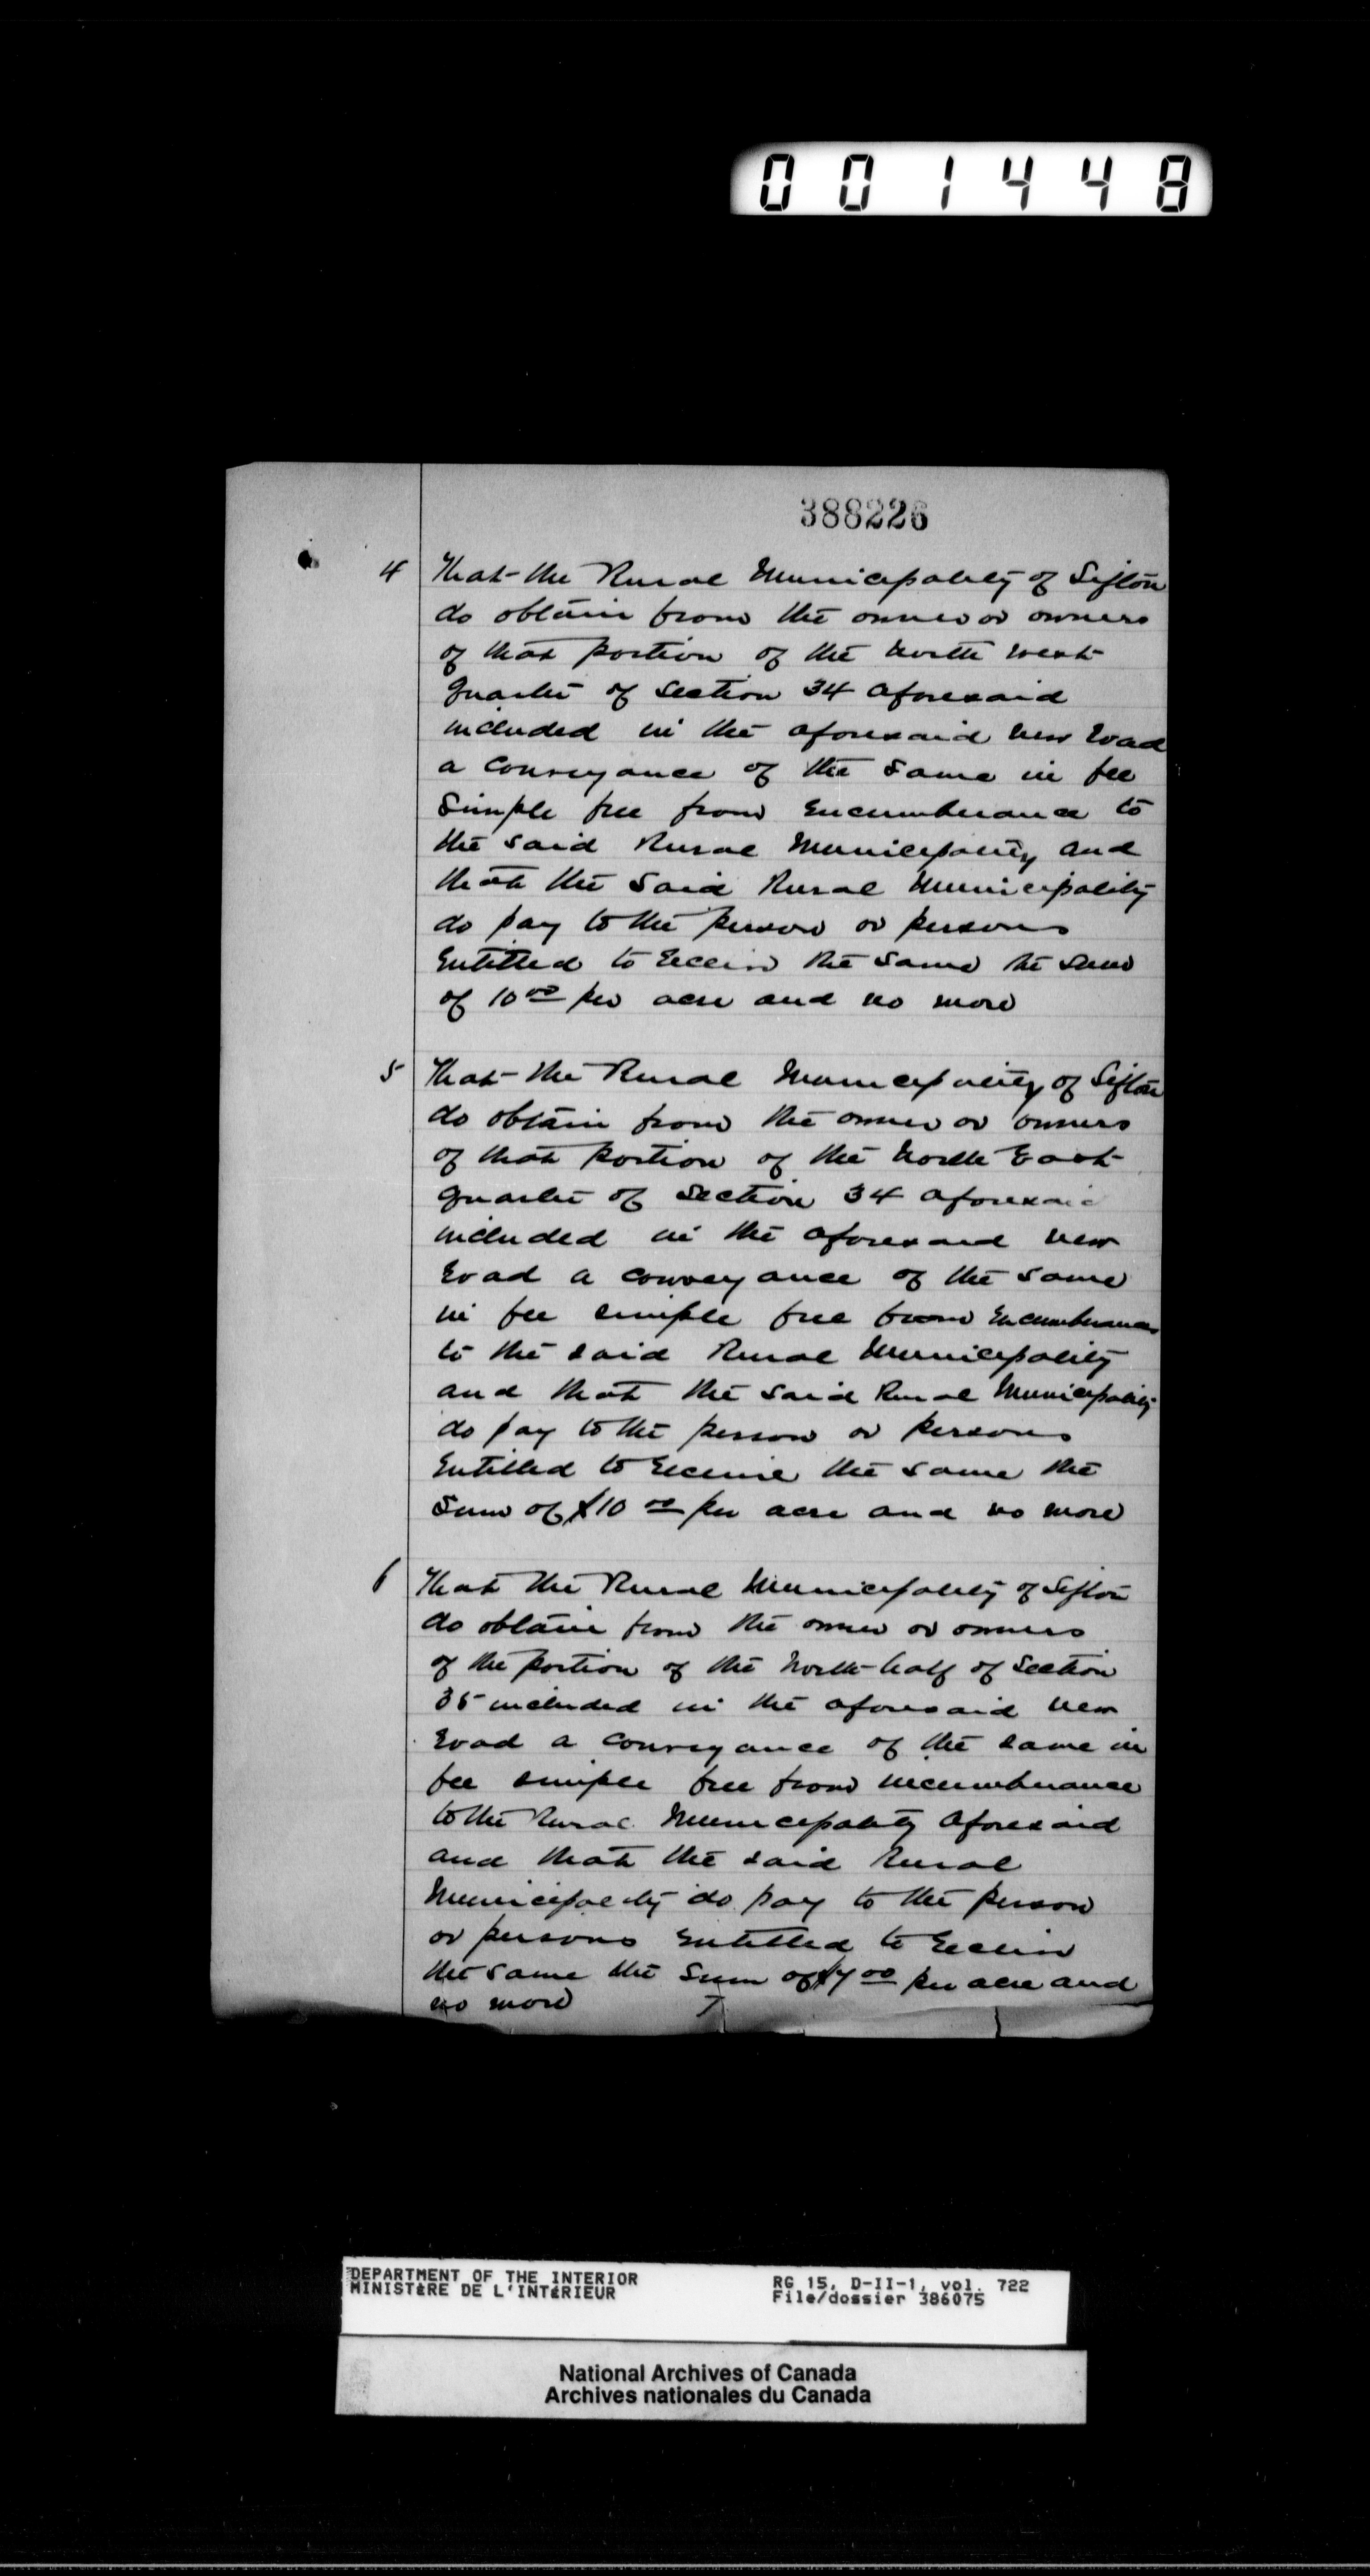 001448
388226
4 That the Rural Municipality of Sifton
do obtain from the owner or owners
of that portion of the North West
quarter of Section 34 aforesaid
included in the aforesaid new road
a conveyance of the same in fee
simple free from encumberance to
the said Rural Municipality and
that the said Rural Municipality
do pay to the person or persons
entitled to receive the same the sum
of 10 00 per acre and no more
5 That the Rural Municipality of Sifton
do obtain from the owner or owners
of that portion of the North East
quarter of Section 34 aforesaid
included in the aforesaid new
road a conveyance of the same
in fee simple free from encumberances
to the said Rural Municipality
and that the said Rural Municipality
do pay to the person or persons
entitled to receive the same the
sum of $10 00 per acre and no more
6 That the Rural Municipality of Sifton
do obtain from the owner or owners
of the portion of the North half of Section
35 included in the aforesaid new
road a conveyance of the same in
fee simple free from incumberance
to the Rural Municipality aforesaid
and that the said Rural
Municipality do pay to the person
or persons entitled to receive
the same the sum of $7 00 per acre and
no more 7
DEPARTMENT OF THE INTERIOR
MINISTÈRE DE L'INTÉRIEUR
RG 15, D-II-1, vol. 722
File/dossier 386075
National Archives of Canada
Archives nationales du Canada